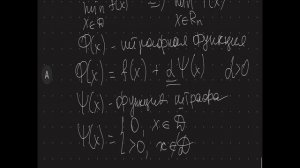 min f(x) => min f(x)
x∈D x∈Rn
Φ(x) - штрафная функция
Φ(x) = f(x) + αΨ(x) α>0
Ψ(x) - функция штрафа
Ψ(x) = { 0, x∈D
>0, x∉D
A